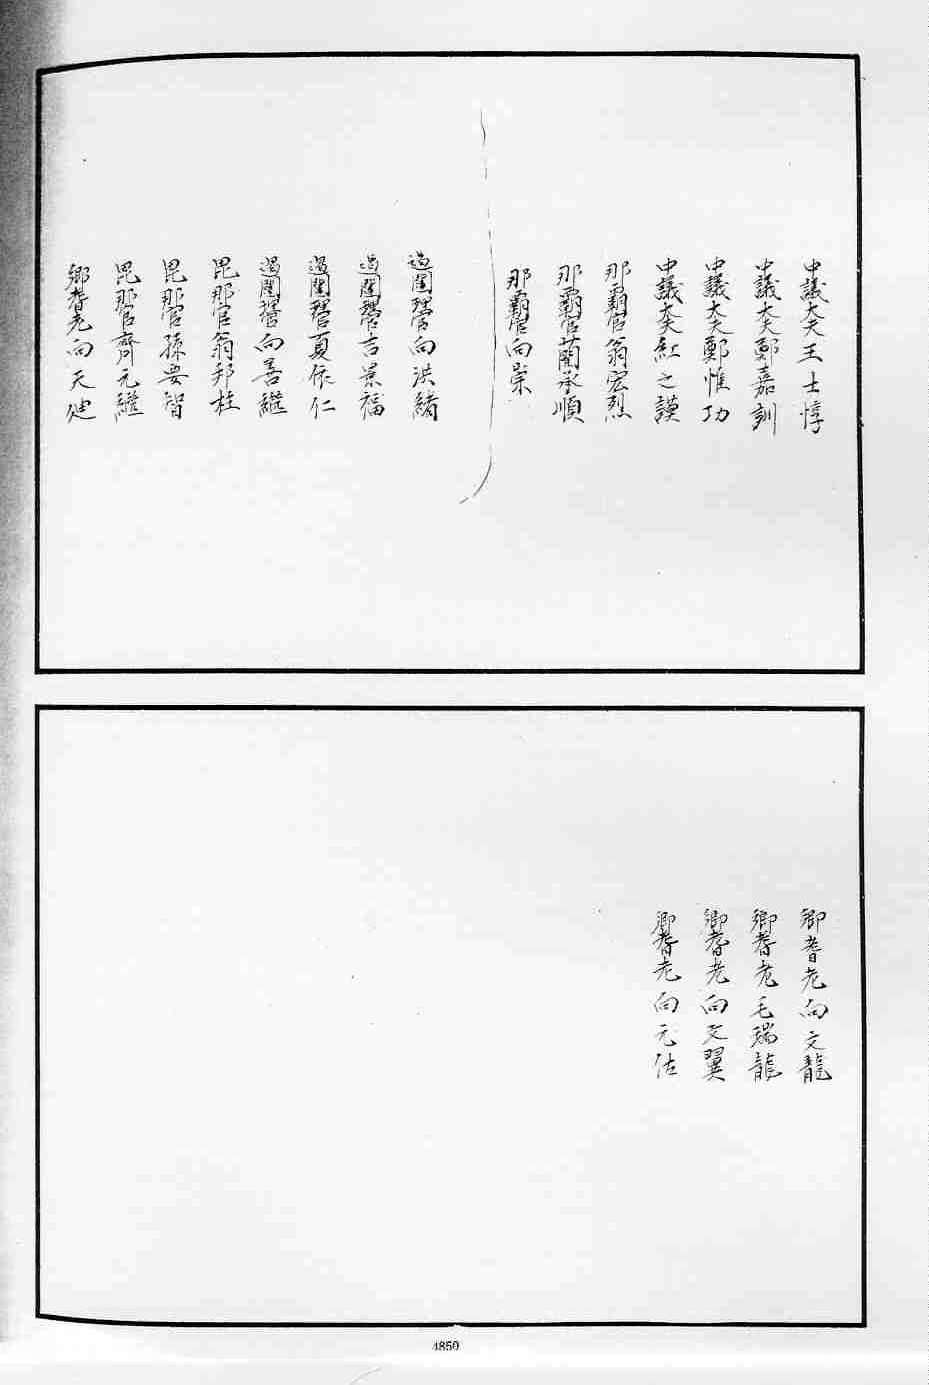 中議大夫王士惇
中議大夫鄭嘉訓
中議大夫鄭惟功
中議大夫紅之謨
那霸官翁宏烈
那霸官藺承順
那霸官向崇
遏闥理官向洪緒
遏闥理官言景福
遏闥理官夏依仁
遏闥理官向善繼
毘那官翁邦柱
毘那官孫安智
毘那官齊元繼
鄉耆老向天廸
鄉耆老向文龍
鄉耆老毛瑞龍
鄉耆老向文翼
鄉耆老向元佐
4850